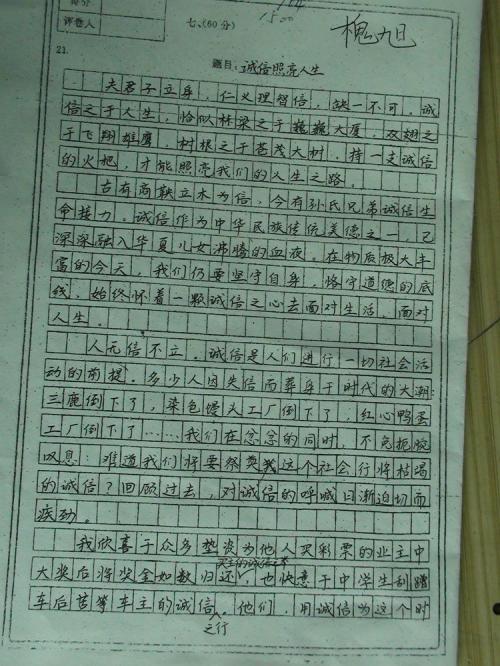 得分
评卷人
七、(60分)
1500
槐旭
21.
题目:诚信照亮人生
夫君子立身,仁义理智信,缺一不可。诚
信之于人生,恰似栋梁之于巍巍大厦,双翅之
于飞翔雄鹰,树根之于苍茂大树,持一支诚信
的火把,才能照亮我们的人生之路。
古有商鞅立木为信,今有孙氏兄弟诚信生
命接力。诚信作为中华民族传统美德之一,已
深深融入华夏儿女沸腾的血液。在物质极大丰
富的今天,我们仍要坚守自身,恪守道德的底
线,始终怀着一颗诚信之心去面对生活,面对
人生。
人无信不立。诚信是人们进行一切社会活
动的前提。多少人因失信而葬身于时代的大潮
三鹿倒下了,染色馒头工厂倒下了,红心鸭蛋
工厂倒下了……我们在忿忿的同时,不免扼腕
叹息:难道我们将要祭奠我这个社会行将枯竭
的诚信?回顾过去,对诚信的呼喊日渐迫切而
疾劲。
我欣喜于众多垫资为他人买彩票的业主中
大奖后将奖金如数归还,也快意于中学生刮蹭
车后苦等车主的诚信,他们,用诚信为这个时
之行